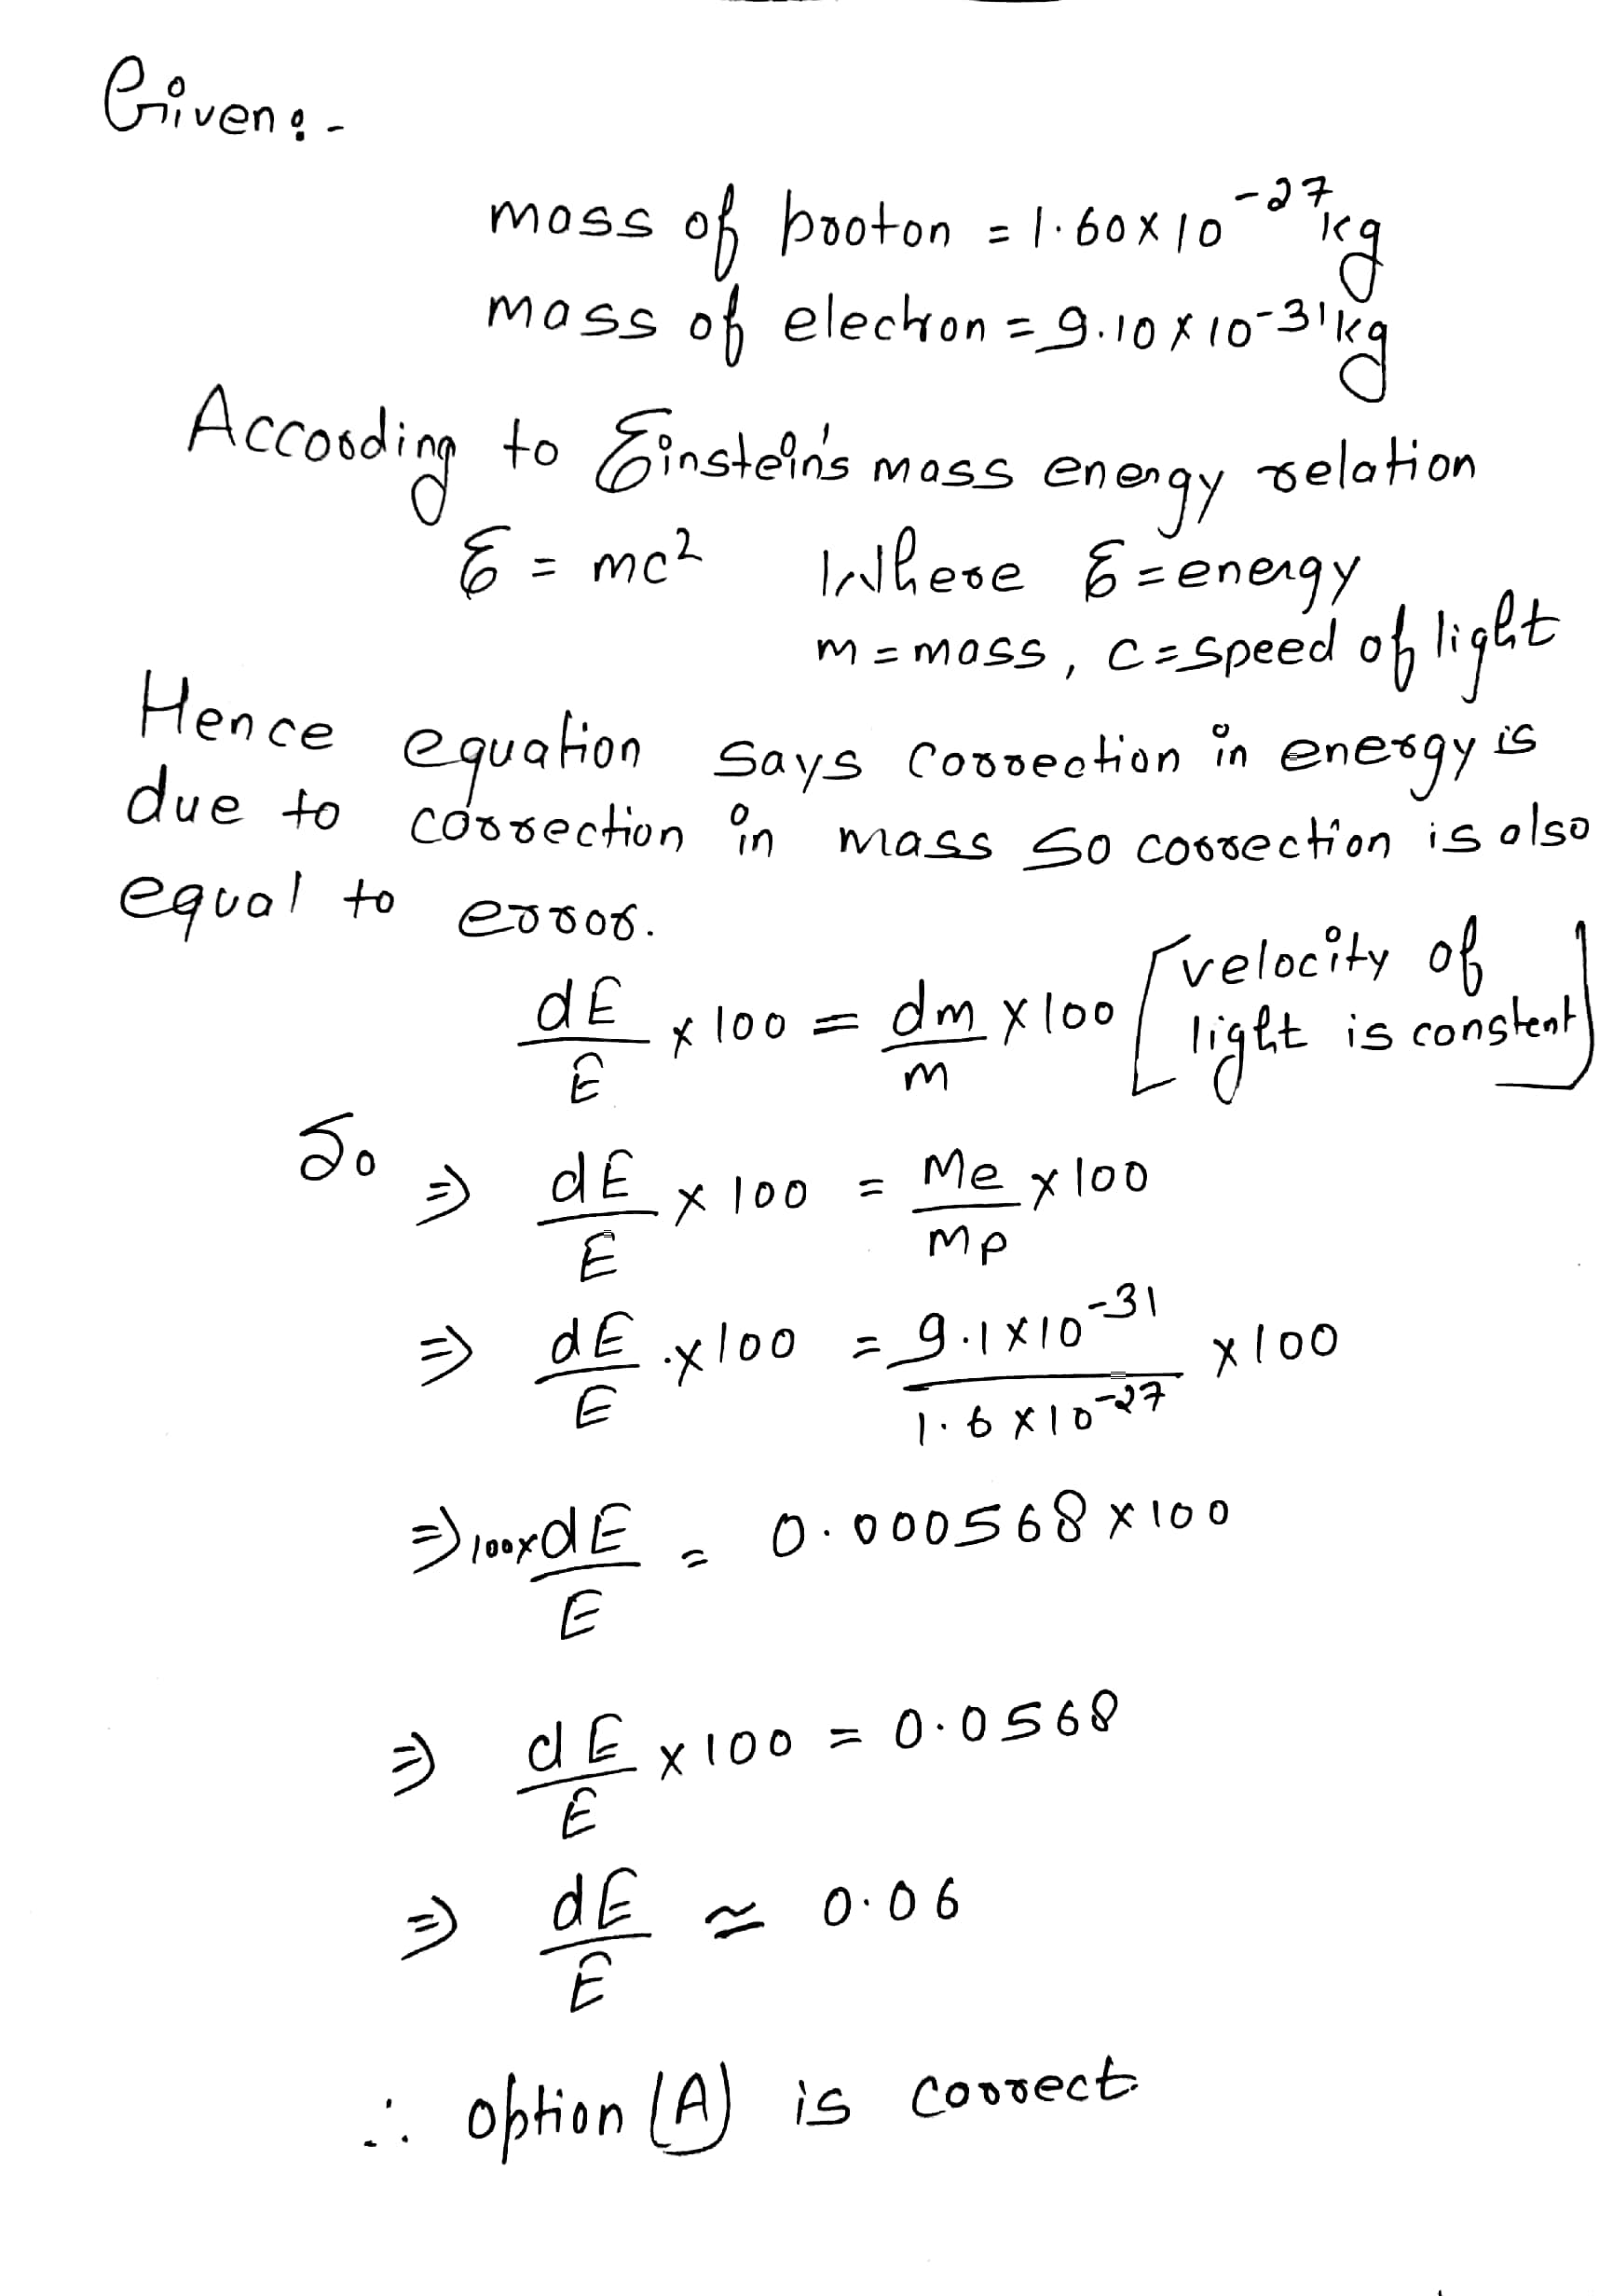 Given:-
mass of proton = 1.60×10⁻²⁷ kg
mass of electron = 9.10×10⁻³¹ kg
According to Einstein's mass energy relation
E = mc² Where E = energy
m = mass, c = speed of light
Hence equation says correction in energy is
due to correction in mass so correction is also
equal to error.
dE/E × 100 = dm/m × 100 [velocity of light is constent]
So ⇒ dE/E × 100 = Me/Mp × 100
⇒ dE/E .× 100 = 9.1×10⁻³¹/1.6×10⁻²⁷ × 100
⇒ 100× dE/E = 0.000568 × 100
⇒ dE/E × 100 = 0.0568
⇒ dE/E ≃ 0.06
∴ option (A) is correct.